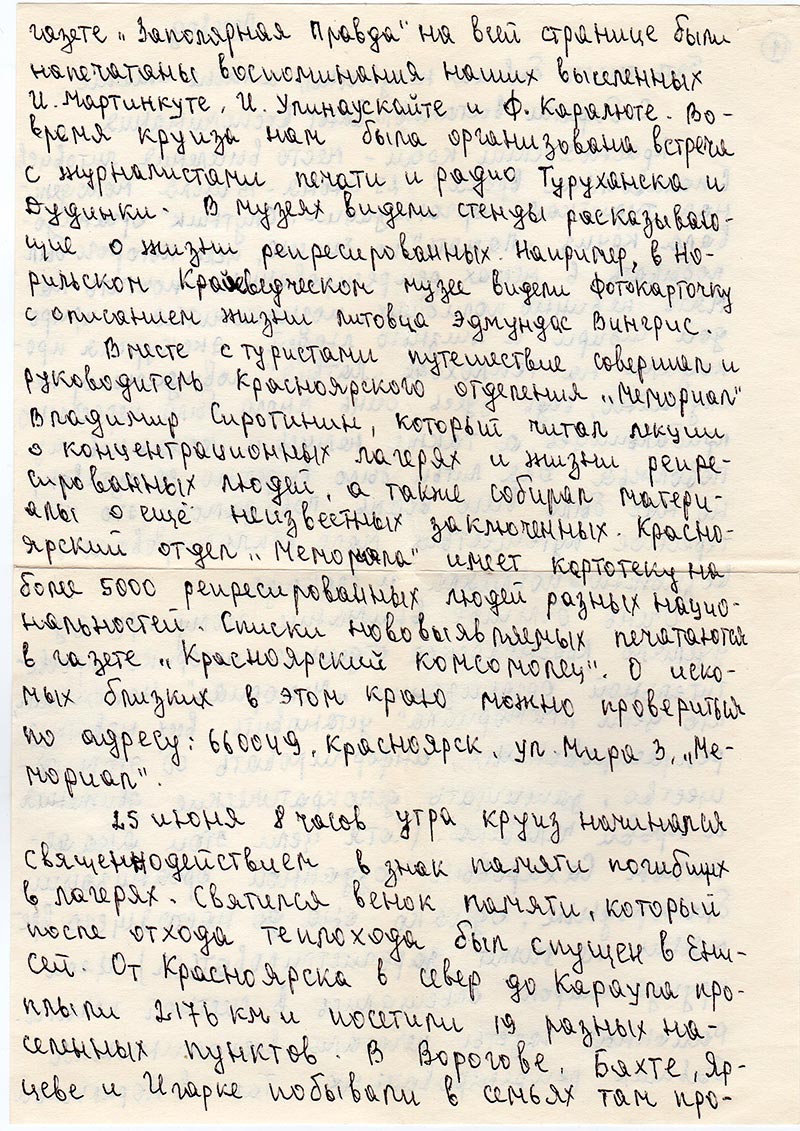 газете „Заполярная Правда" на всей странице были
напечатаны воспоминания наших выселенных
И. Мартинкуте, И. Упинаускайте и Ф. Каралюте. Во-
время круиза нам была организована встреча
с журналистами печати и радио Туруханска и
Дудинки. В музеях видели стенды расказываю-
щие о жизни репресированных. Например, в Но-
рильском Краеведческом музее видели фотокарточку
с описанием жизни литовца Эдмундас Вингрис.
Вместе с туристами путешествие совершал и
руководитель Красноярского отделения „Мемориал"
Владимир Сиротинин, который читал лекции
о концентрационных лагерях и жизни репре-
сированных людей, а также собирал матери-
алы о ещё неизвестных заключенных. Красно-
ярский отдел „Мемориала" имеет картотеку на
боле 5000 репресированных людей разных нацио-
нальностей. Списки нововыявляемых печатаются
в газете „Красноярский комсомолец". О иско-
мых близких в этом краю можно провериться
по адресу: 660049, Красноярск, ул. Мира 3, „Ме-
мориал".
25 июня 8 часов утра круиз начинался
священнодействием в знак памяти погибших
в лагерях. Святился венок памяти, который
после отхода теплохода был спущен в Ени-
сей. От Красноярска в север до Караула про-
плыли 2176 км и посетили 19 разных на-
селенных пунктов. В Ворогове, Бахте, Яр-
цеве и Игарке побывали в семьях там про-